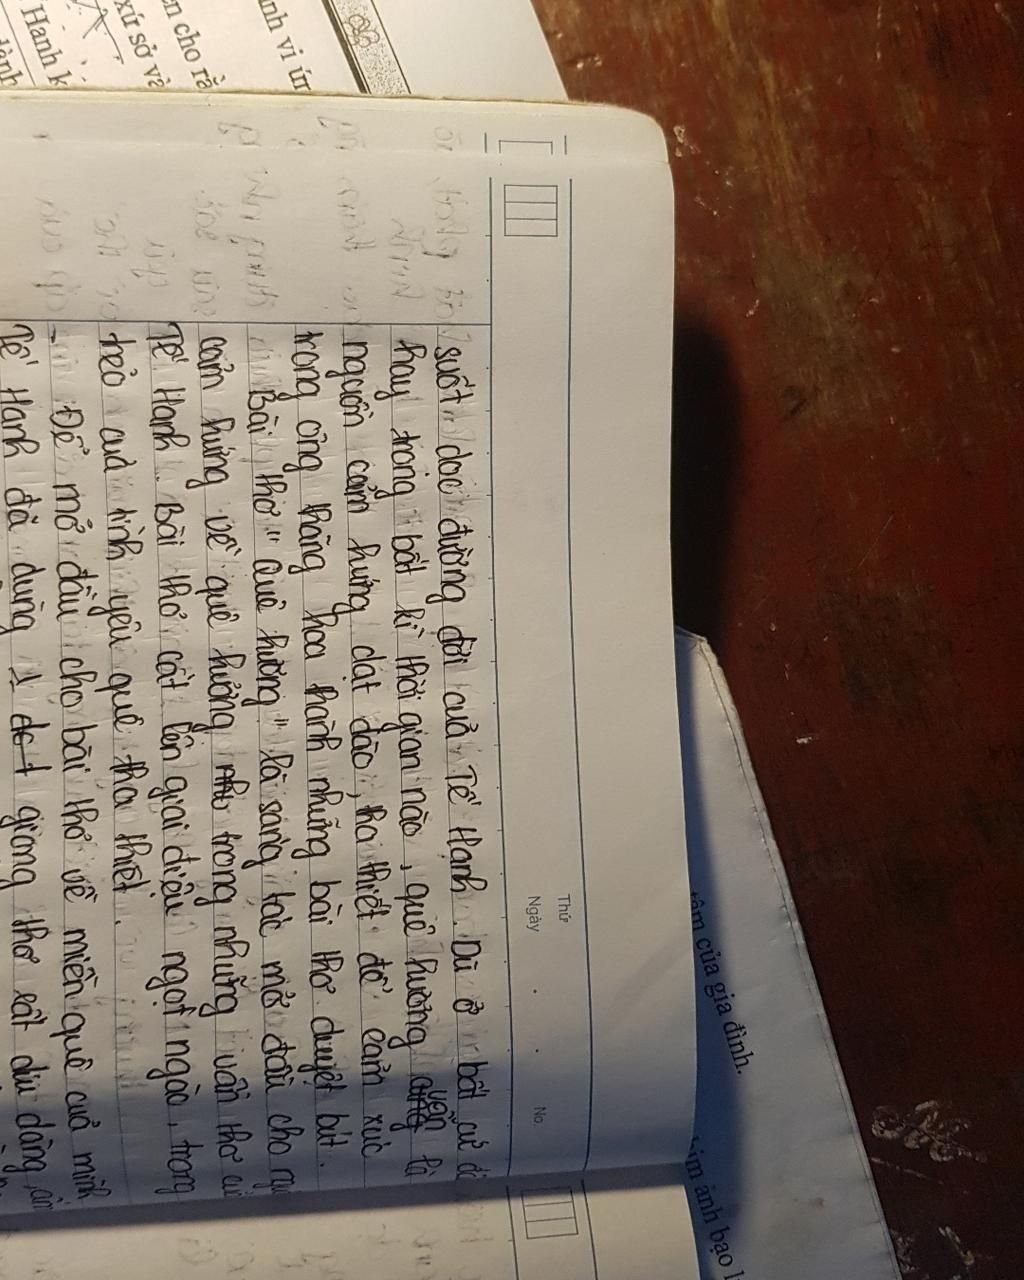 Thứ
Ngày . . No.
suốt dọc đường đời của Tế Hanh. Dù ở bất cứ đ
hay trong bất kì thời gian nào, quê hương vẫn là
nguồn cảm hứng dạt dào, tha thiết để cảm xúc
trong ông thăng hoa thành những bài thơ duyệt bút.
Bài thơ " Quê hương " là sáng tác mở đầu cho
cảm hứng về quê hương trong những vần thơ
Tế Hanh. Bài thơ cất lên giai điệu ngọt ngào, trong
trẻo của tình yêu quê tha thiết.
Để mở đầu cho bài thơ về miền quê của mình
Tế Hanh đã dùng 1 giọng thơ rất dịu dàng,
ành vi ứn
n cho rằ
xứ sở và
Hành k
dành
tâm của gia đình.
ảnh bạo l